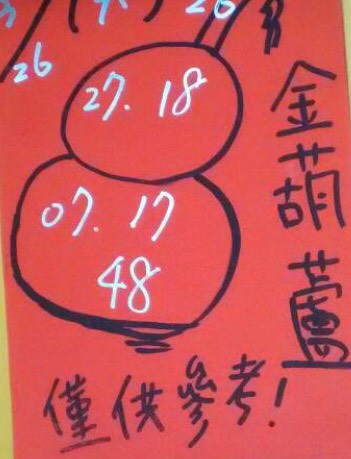 26
26
27. 18
07. 17
48
金葫蘆
僅供參考!